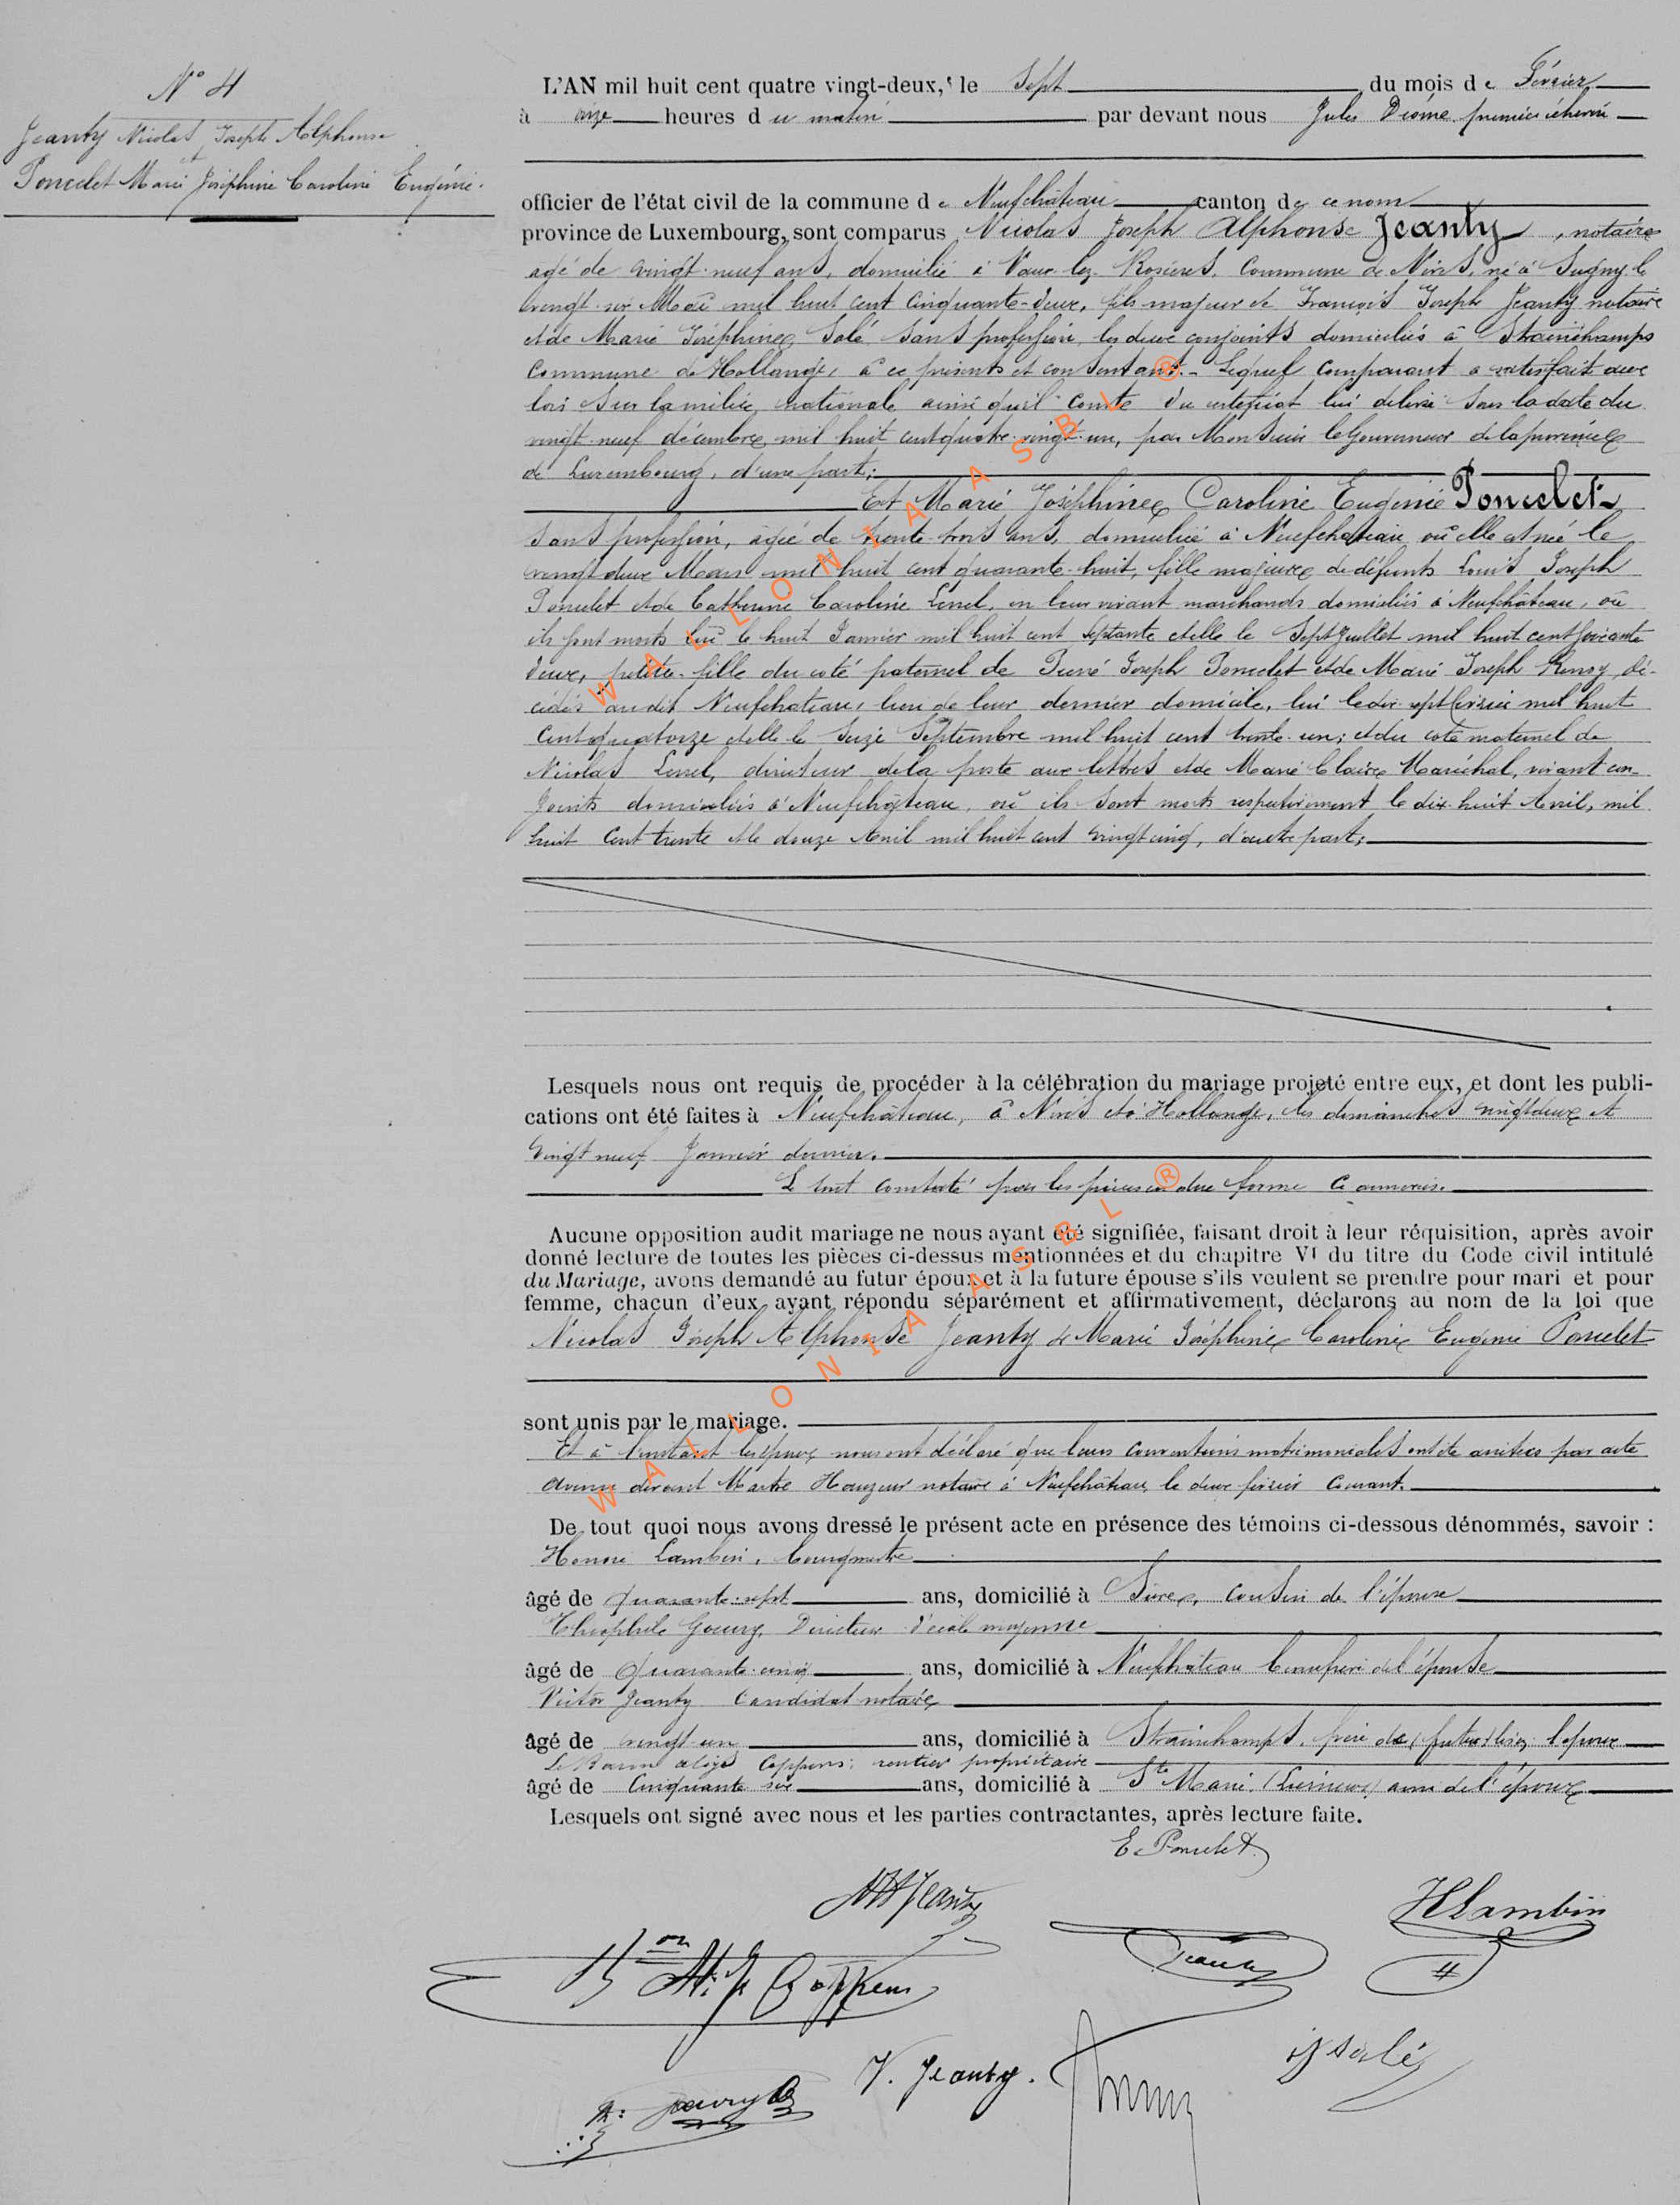 N° 4
Jeanty Nicolas Joseph Alphonse
et
Poncelet Marie Joséphine Caroline Eugénie.
L'AN mil huit cent quatre vingt-deux, le Sept du mois de Février
à onze heures du matin par devant nous Jules Diôme premier échevin
officier de l'état civil de la commune de Neufchâteau canton de ce nom
province de Luxembourg, sont comparus Nicolas Joseph Alphonse Jeanty, notaire
agé de vingt-neuf ans, domicilié à Vaux-lez-Rosières, Commune de Nives, né à Sugny le
vingt six Mai mil huit cent cinquante-deux, fils majeur de François Joseph Jeanty notaire
et de Marie Joséphine Salé sans profession, les deux conjoints domiciliés à Strainchamps
Commune de Hollange, à ce présents et consentant. - Lequel Comparant a satisfait aux
lois sur la milice nationale ainsi qu'il conste du certificat lui délivré sous la date du
vingt-neuf décembre mil huit cent quatre-vingt-un, par Monsieur le Gouverneur de la province
de Luxembourg, d'une part;
Et Marie Joséphine Caroline Eugénie Poncelet
sans profession, agée de trente-trois ans, domiciliée à Neufchâteau où elle est née le
vingt deux Mars mil huit cent quarante-huit, fille majeure de défunts Louis Joseph
Poncelet et de Catherine Caroline Lenel, en leur vivant marchands domiciliés à Neufchâteau, où
ils sont morts lui le huit Janvier mil huit cent septante et elle le Sept Juillet mil huit cent soixante
deux, petite-fille du coté paternel de Pierre Joseph Poncelet et de Marie Joseph Roussy, dé-
cédés audit Neufchâteau, lieu de leur dernier domicile, lui le dix-sept février mil huit
cent quatorze et elle le seize Septembre mil huit cent trente-un; et du coté maternel de
Nicolas Lenel, directeur de la poste aux lettres et de Marie Claire Maréchal, vivant con-
joints domiciliés à Neufchâteau, où ils sont morts respectivement le dix-huit Avril, mil
huit cent trente et le douze Avril mil huit cent vingt cinq, d'autre part;
Lesquels nous ont requis de procéder à la célébration du mariage projeté entre eux, et dont les publi-
cations ont été faites à Neufchâteau, à Nives et à Hollange, les dimanches vingt deux et
vingt neuf Janvier dernier.
Le tout constaté par les pièces en due forme ci annexées.
Aucune opposition audit mariage ne nous ayant été signifiée, faisant droit à leur réquisition, après avoir
donné lecture de toutes les pièces ci-dessus mentionnées et du chapitre VI du titre du Code civil intitulé
du Mariage, avons demandé au futur époux et à la future épouse s'ils veulent se prendre pour mari et pour
femme, chacun d'eux ayant répondu séparément et affirmativement, déclarons au nom de la loi que
Nicolas Joseph Alphonse Jeanty et Marie Joséphine Caroline Eugénie Poncelet
sont unis par le mariage.
Et à l'instant les époux nous ont déclaré que leurs conventions matrimoniales ont été arrêtées par acte
avenu devant Maître Houzeur notaire à Neufchâteau, le deux février courant.
De tout quoi nous avons dressé le présent acte en présence des témoins ci-dessous dénommés, savoir :
Honoré Lambin, bourgmestre
âgé de quarante-sept ans, domicilié à Sûre, cousin de l'épouse
Théophile Goury, Directeur d'école moyenne
âgé de quarante-cinq ans, domicilié à Neufchâteau beaufrère de l'épouse
Victor Jeanty Candidat notaire
âgé de vingt-un ans, domicilié à Strainchamps, frère de l'époux
Le Baron Coppens, rentier propriétaire
âgé de cinquante six ans, domicilié à Ste Marie, ami de l'époux
Lesquels ont signé avec nous et les parties contractantes, après lecture faite.
E. Poncelet
Jeanty
HLambin
Bon Coppens
Jeanty
V. Jeanty.
Salé
Goury
WALLONIA ASBL ®
WALLONIA ASBL ®